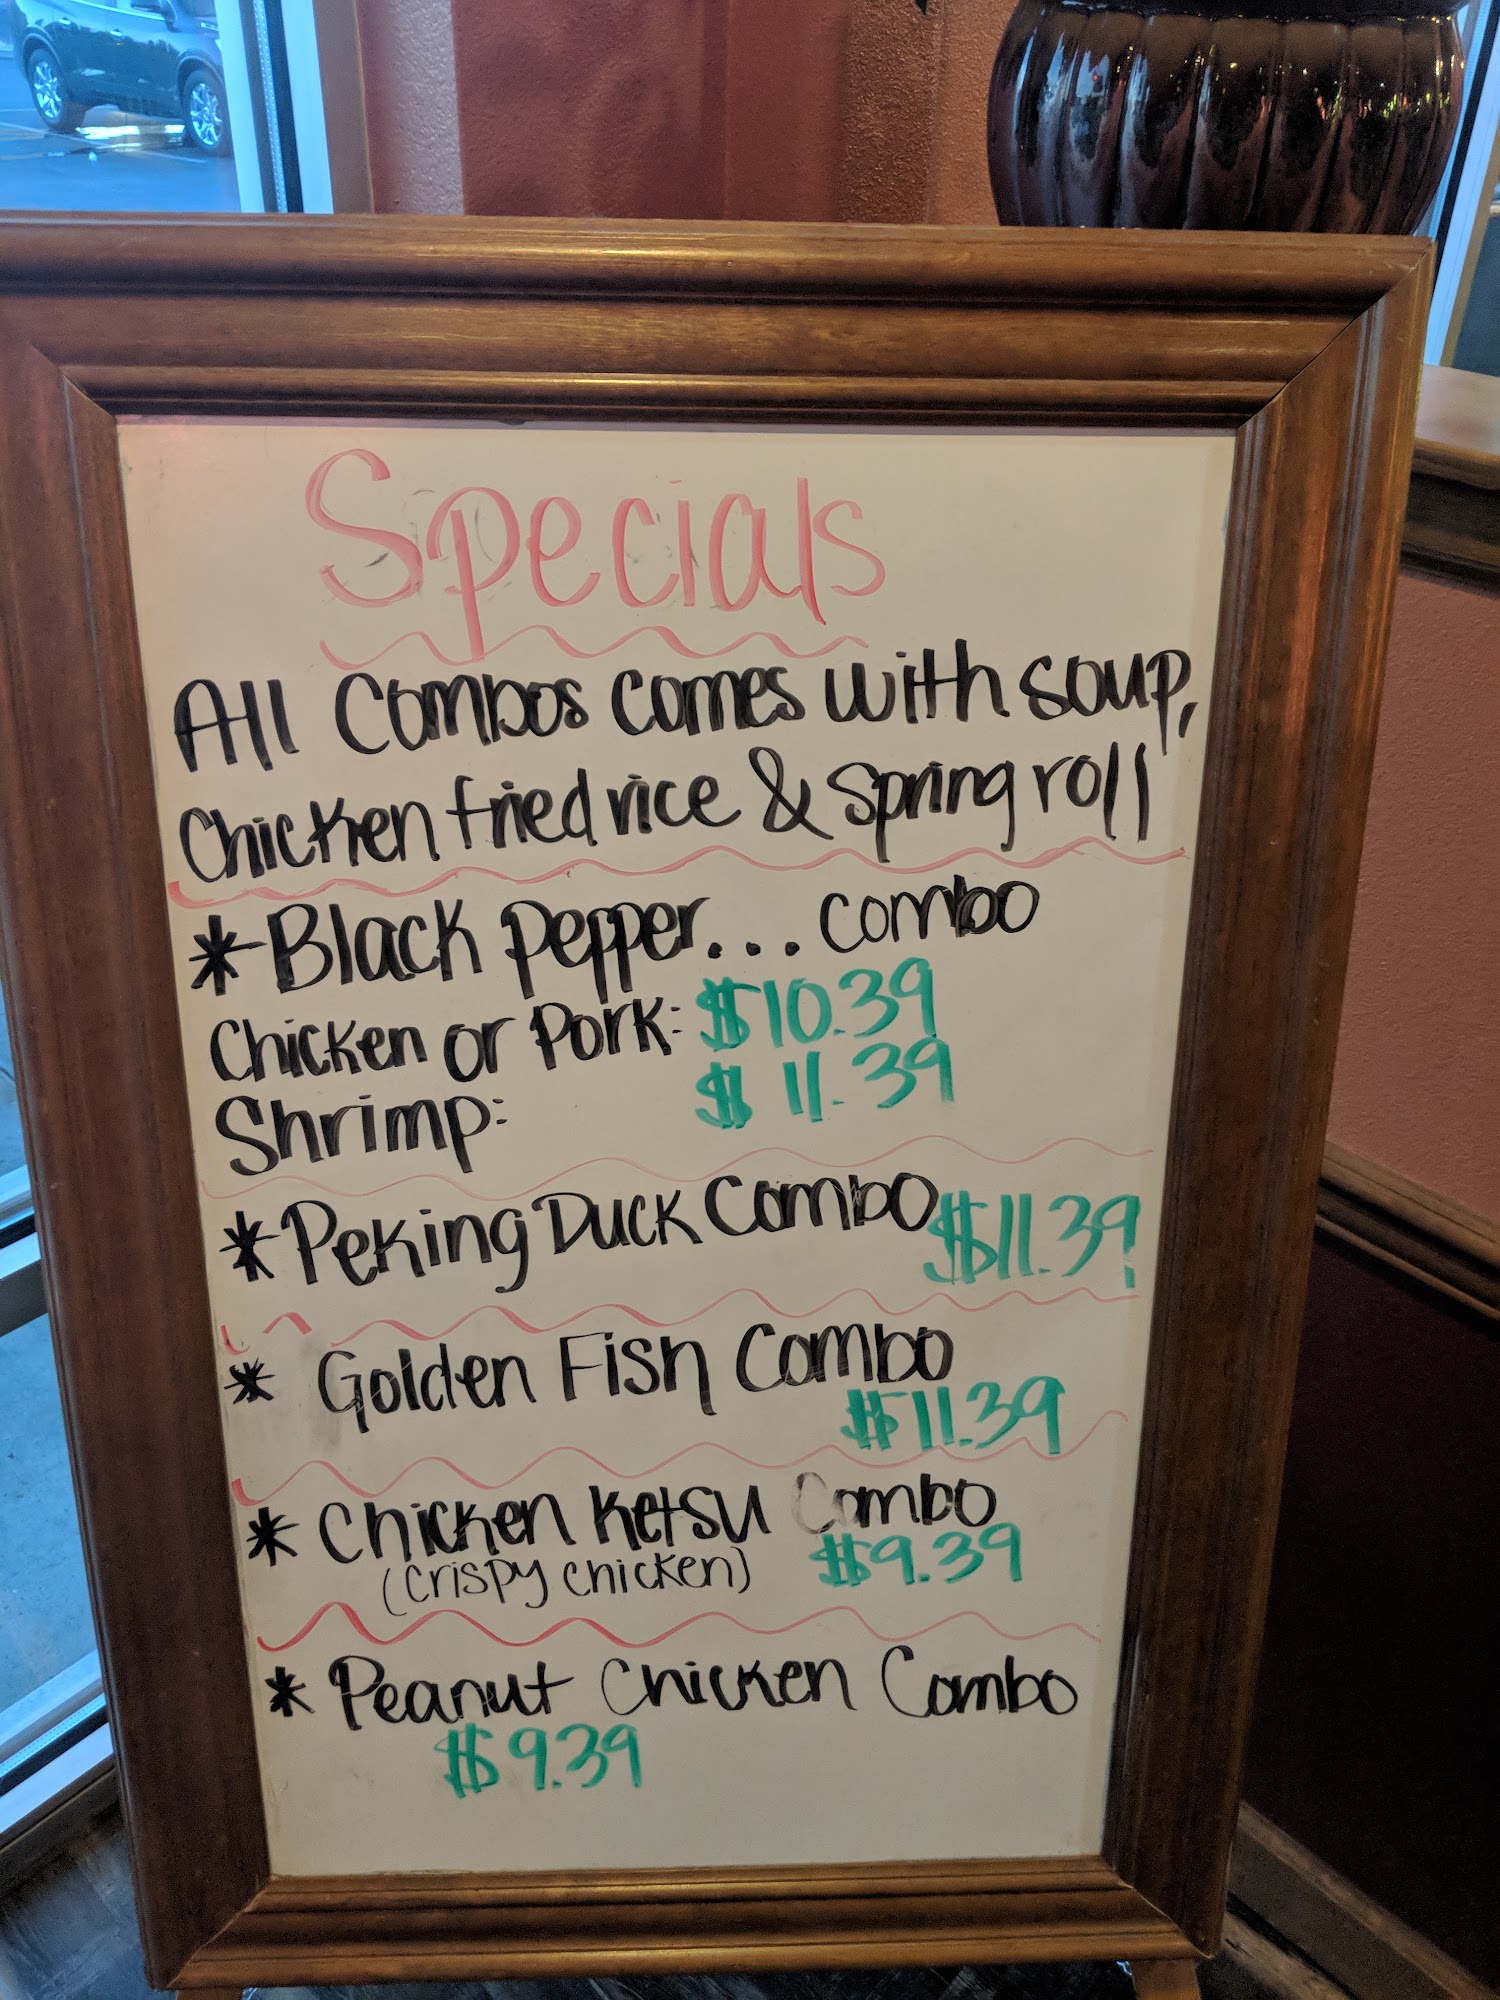 Specials
All Combos comes with soup,
Chicken fried rice & Spring roll
* Black pepper... combo
Chicken or Pork: $10.39
Shrimp: $11.39
* Peking Duck Combo $11.39
* Golden Fish Combo
$11.39
* Chicken Ketsu Combo
(crispy chicken) $9.39
* Peanut Chicken Combo
$9.39